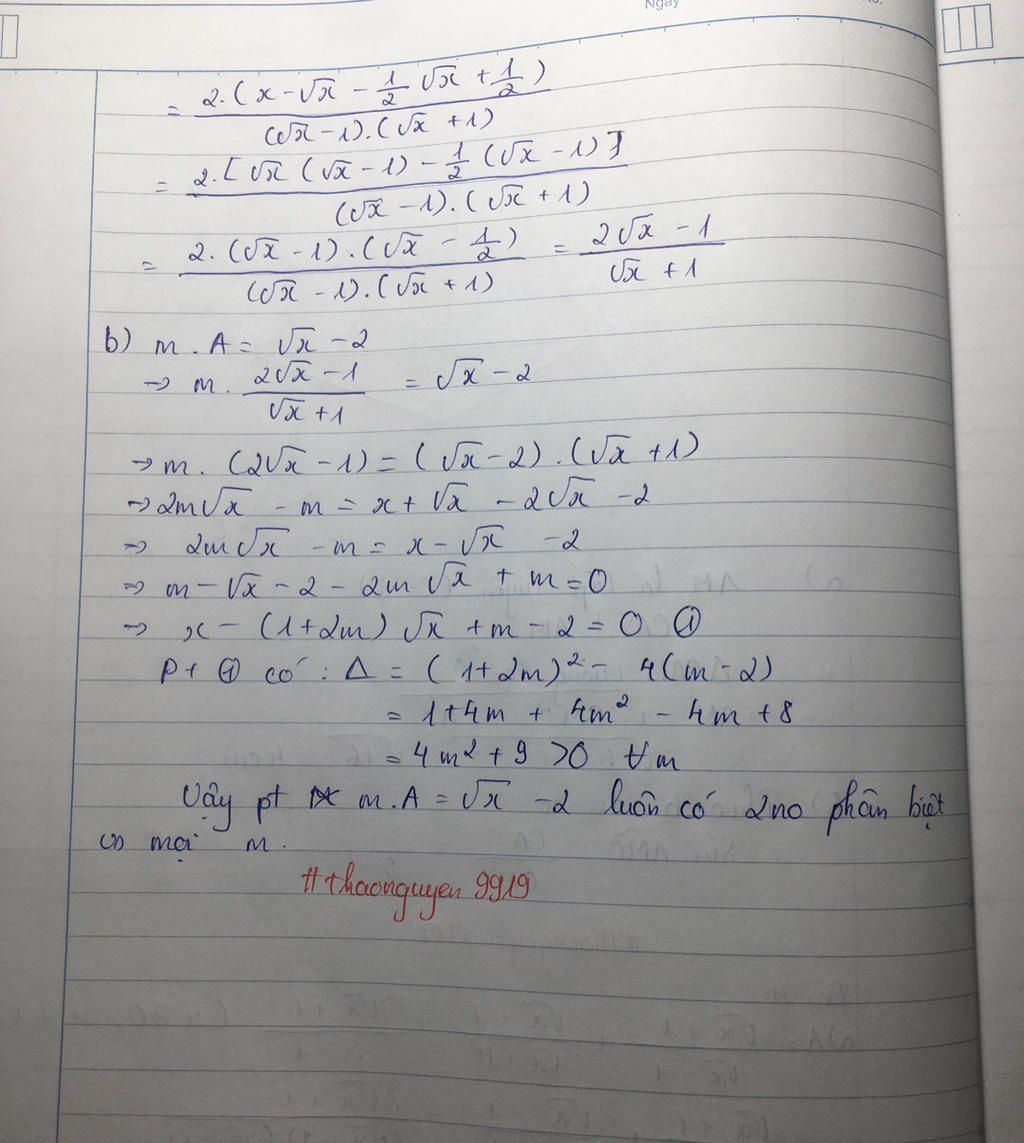 Ngày
= 2.(x - √x - 1/2 √x + 1/2) / (√x - 1).(√x + 1)
= 2.[√x (√x - 1) - 1/2 (√x - 1)] / (√x - 1).(√x + 1)
= 2.(√x - 1).(√x - 1/2) / (√x - 1).(√x + 1) = 2√x - 1 / √x + 1
b) m.A = √x - 2
→ m. 2√x - 1 / √x + 1 = √x - 2
→ m.(2√x - 1) = (√x - 2).(√x + 1)
→ 2m√x - m = x + √x - 2√x - 2
→ 2m√x - m = x - √x - 2
→ m - √x - 2 - 2m√x + m = 0
→ x - (1 + 2m) √x + m - 2 = 0 ①
Pt ① có: Δ = (1 + 2m)² - 4(m - 2)
= 1 + 4m + 4m² - 4m + 8
= 4m² + 9 > 0 ∀m
Vậy pt m.A = √x - 2 luôn có 2 no phân biệt
vs mọi m.
#thaonguyen9919